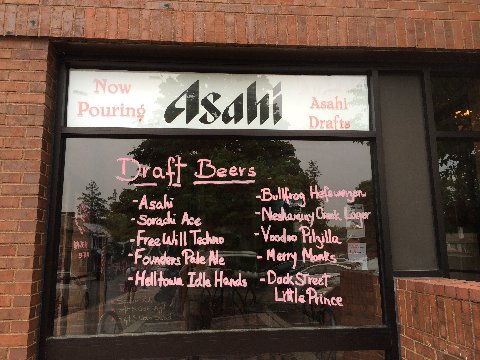 Now
Pouring
Asahi
Asahi
Drafts
Draft Beers
-Asahi
-Sorachi Ace
-Free Will Techno
-Founders Pale Ale
-Helltown Idle Hands
-Bullfrog Hefeweizen
-Neshaminy Creek Lager
-Voodoo Pilzilla
-Merry Monks
-Dock Street
Little Prince